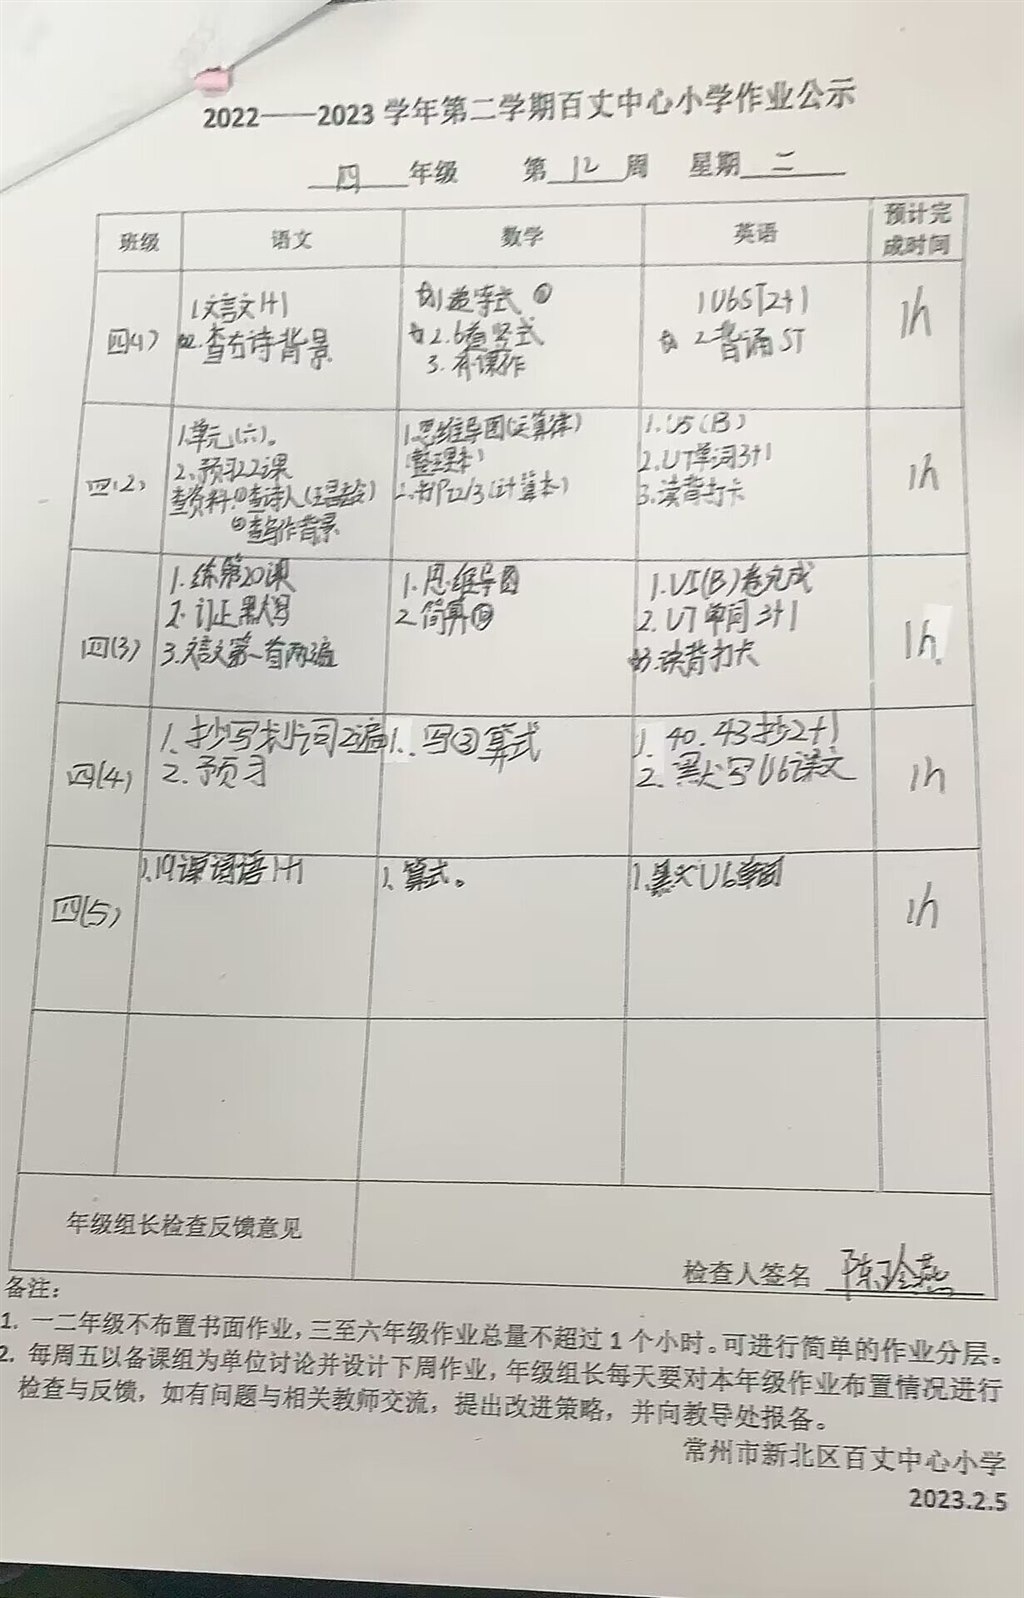 2022——2023学年第二学期百丈中心小学作业公示
四 年级 第 12 周 星期 二
班级 语文 数学 英语 预计完成时间
四(1)
1.文言文1+1
2.查古诗背景
1.递等式
2.6道竖式
3.
1 U6ST2+1
2 背诵ST
1h
四(2)
1.单元(六)。
2.预习22课
查资料:①查诗人(王昌龄)
②查写作背景
1.思维导图(运算律)
(整理本)
2.书P22/3(计算本)
1.U5(B)
2.U7单词3+1
3.读背打卡
1h
四(3)
1.练第20课
2.订正默写
3.文言文第一首两遍
1.思维导图
2.简算
1.U5(B)卷完成
2.U7单词3+1
3.读背打卡
1h.
四(4)
1.抄写划词2遍
2.预习
1.写③算式
1.40.43抄2+1
2.默写U6课文
1h
四(5)
1.19课词语1+1
1.算式。
1.默U6单词
1h
年级组长检查反馈意见
检查人签名 陈玲燕
备注：
1. 一二年级不布置书面作业，三至六年级作业总量不超过1个小时。可进行简单的作业分层。
2. 每周五以备课组为单位讨论并设计下周作业，年级组长每天要对本年级作业布置情况进行
检查与反馈，如有问题与相关教师交流，提出改进策略，并向教导处报备。
常州市新北区百丈中心小学
2023.2.5